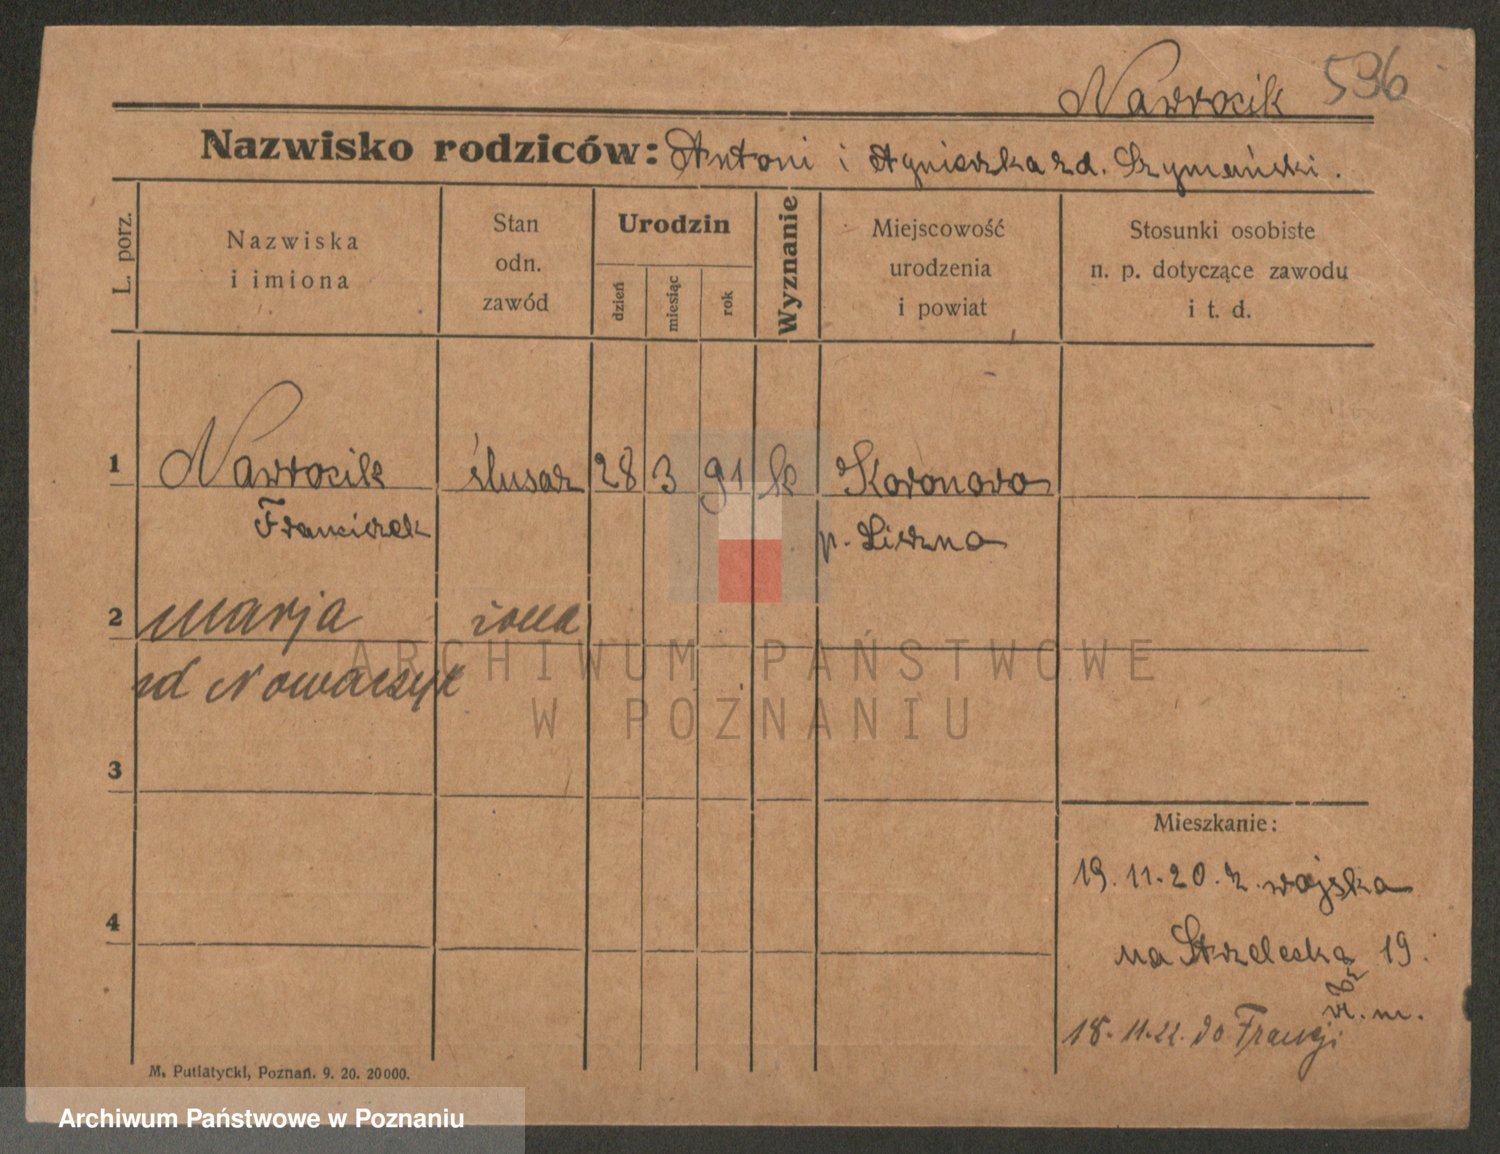 Nawrocik 596
Nazwisko rodziców: Antoni i Agnieszka zd. Szymański.
L. porz.
Nazwiska
i imiona
Stan
odn.
zawód
Urodzin
dzień
miesiąc
rok
Wyznanie
Miejscowość
urodzenia
i powiat
Stosunki osobiste
n. p. dotyczące zawodu
i t. d.
1 Nawrocik ślusarz 28 3 91 k Koronowo
Franciszek p.
2 Marja żona
zd Nowaczyk
3
4
Mieszkanie:
19.11.20. z. wojska
na Strzelecką 19.
18.11.22. do Francji
M. Putiatycki, Poznań. 9. 20. 20000.
ARCHIWUM PAŃSTWOWE
W POZNANIU
Archiwum Państwowe w Poznaniu